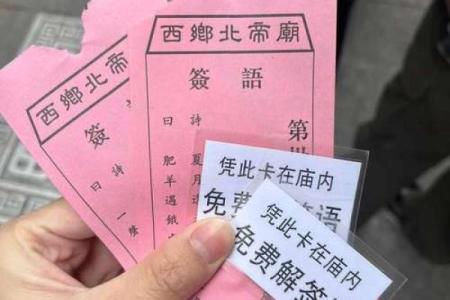 西鄉北帝廟
簽
曰詩
一
西鄉北帝廟
簽語
第
曰詩
夏月
肥羊遇餓
凭此卡在庙内
免费 语
凭此卡在庙内
免费解签